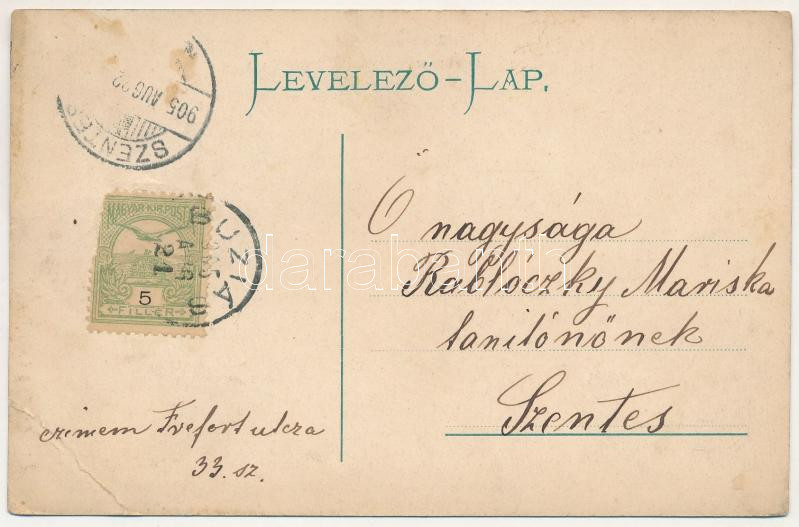 LEVELEZŐ-LAP.
905 AUG 22
SZENTES
MAGYAR KIR. POSTA
5
FILLÉR
BUZIÁS
905 AUG
21
Ő nagysága
Rablóczky Mariska
tanítónőnek
Szentes
czimem utcza
33. sz.
darabanth